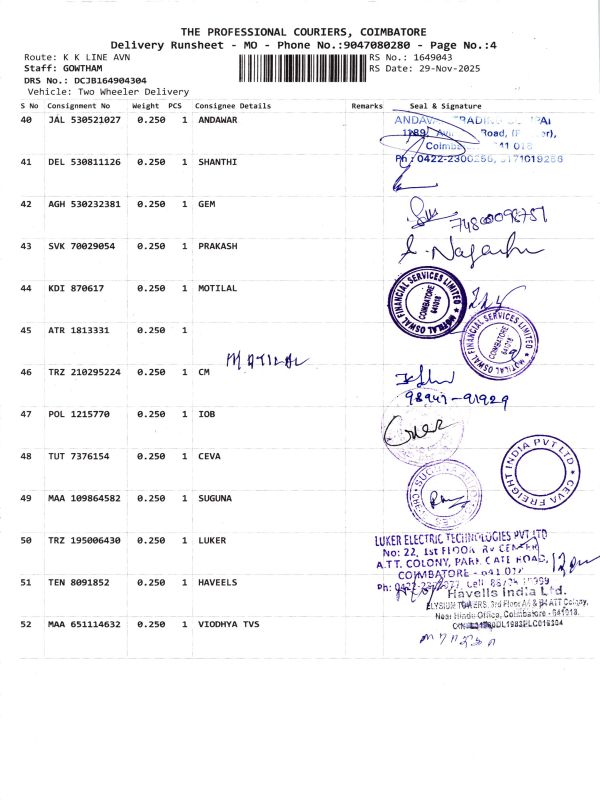 THE PROFESSIONAL COURIERS, COIMBATORE
Delivery Runsheet - MO - Phone No.:9047080280 - Page No.:4
Route: K K LINE AVN
RS No.: 1649043
Staff: GOWTHAM
RS Date: 29-Nov-2025
DRS No.: DCJB164904304
Vehicle: Two Wheeler Delivery
S No Consignment No Weight PCS Consignee Details Remarks Seal & Signature
40 JAL 530521027 0.250 1 ANDAWAR
Road,
Ph : 0422-2300256,
41 DEL 530811126 0.250 1 SHANTHI
42 AGH 530232381 0.250 1 GEM
43 SVK 70029054 0.250 1 PRAKASH
44 KDI 870617 0.250 1 MOTILAL
MOTILAL OSWAL FINANCIAL SERVICES LIMITED
COIMBATORE
641018
45 ATR 1813331 0.250 1
MOTILAL
MOTILAL OSWAL FINANCIAL SERVICES LIMITED
COIMBATORE
641018
46 TRZ 210295224 0.250 1 CM
98947-91929
47 POL 1215770 0.250 1 IOB
48 TUT 7376154 0.250 1 CEVA
CEVA FREIGHT INDIA PVT LTD
49 MAA 109864582 0.250 1 SUGUNA
50 TRZ 195006430 0.250 1 LUKER
LUKER ELECTRIC TECHNOLOGIES PVT LTD
No: 22, 1st FLOOR, RV CENTER
A.T.T. COLONY, PARK GATE ROAD,
COIMBATORE - 641 018
51 TEN 8091852 0.250 1 HAVEELS
Havells India Ltd.
ELYSIUM TOWERS, 3rd Floor ATT Colony,
Near Hindu Office, Coimbatore - 641018.
52 MAA 651114632 0.250 1 VIODHYA TVS